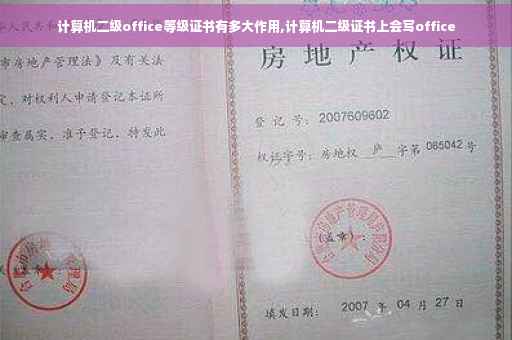 计算机二级office等级证书有多大作用,计算机二级证书上会写office
华人民共和
市房地产管理法》及有关法
定，对权利人申请登记本证所
审查属实，准予登记，特发此
房地产权证
登记号：2007609602
权证字号：房地权 庐 字第 085042 号
(盖章)：
填发日期： 2007 年 04 月 27 日